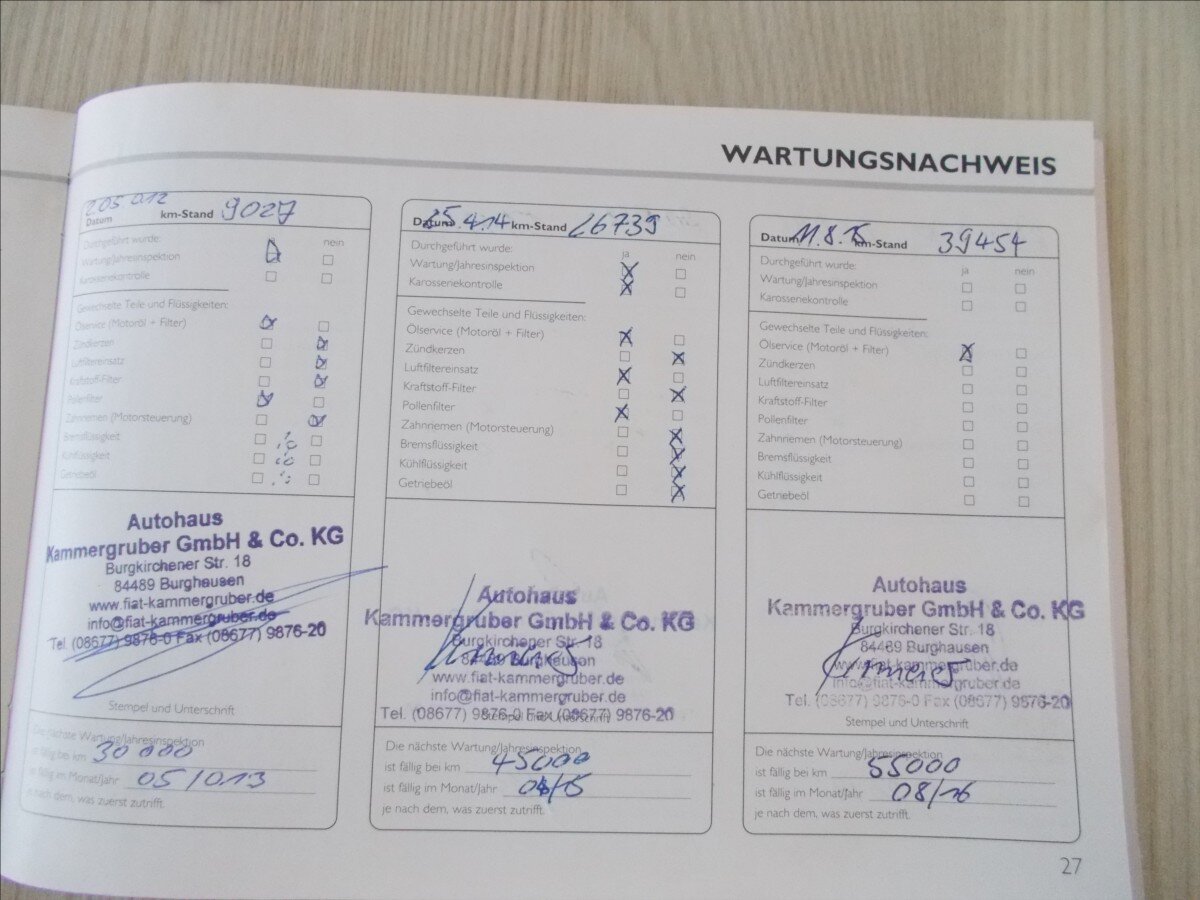 WARTUNGSNACHWEIS
2.05 012
Datum km-Stand 9027
Durchgeführt wurde: nein
Wartung/Jahresinspektion
Karosseriekontrolle
Gewechselte Teile und Flüssigkeiten:
Ölservice (Motoröl + Filter)
Zündkerzen
Luftfiltereinsatz
Kraftstoff-Filter
Pollenfilter
Zahnriemen (Motorsteuerung)
Bremsflüssigkeit
Kühlflüssigkeit
Getriebeöl
Autohaus
Kammergruber GmbH & Co. KG
Burgkirchener Str. 18
84489 Burghausen
www.fiat-kammergruber.de
info@fiat-kammergruber.de
Tel. (08677) 9876-0 Fax (08677) 9876-20
Stempel und Unterschrift
Die nächste Wartung/Jahresinspektion
ist fällig bei km 30 000
ist fällig im Monat/Jahr 05/013
je nach dem, was zuerst zutrifft.
Datum 25.4.14 km-Stand 26739
Durchgeführt wurde: ja nein
Wartung/Jahresinspektion
Karosseriekontrolle
Gewechselte Teile und Flüssigkeiten:
Ölservice (Motoröl + Filter)
Zündkerzen
Luftfiltereinsatz
Kraftstoff-Filter
Pollenfilter
Zahnriemen (Motorsteuerung)
Bremsflüssigkeit
Kühlflüssigkeit
Getriebeöl
Autohaus
Kammergruber GmbH & Co. KG
Burgkirchener Str. 18
84489 Burghausen
www.fiat-kammergruber.de
info@fiat-kammergruber.de
Tel. (08677) 9876-0 Fax (08677) 9876-20
Stempel und Unterschrift
Die nächste Wartung/Jahresinspektion
ist fällig bei km 45000
ist fällig im Monat/Jahr 04/15
je nach dem, was zuerst zutrifft.
Datum 11.8.15 km-Stand 39454
Durchgeführt wurde: ja nein
Wartung/Jahresinspektion
Karosseriekontrolle
Gewechselte Teile und Flüssigkeiten:
Ölservice (Motoröl + Filter)
Zündkerzen
Luftfiltereinsatz
Kraftstoff-Filter
Pollenfilter
Zahnriemen (Motorsteuerung)
Bremsflüssigkeit
Kühlflüssigkeit
Getriebeöl
Autohaus
Kammergruber GmbH & Co. KG
Burgkirchener Str. 18
84489 Burghausen
www.fiat-kammergruber.de
info@fiat-kammergruber.de
Tel. (08677) 9876-0 Fax (08677) 9876-20
Stempel und Unterschrift
Die nächste Wartung/Jahresinspektion
ist fällig bei km 55000
ist fällig im Monat/Jahr 08/16
je nach dem, was zuerst zutrifft.
27